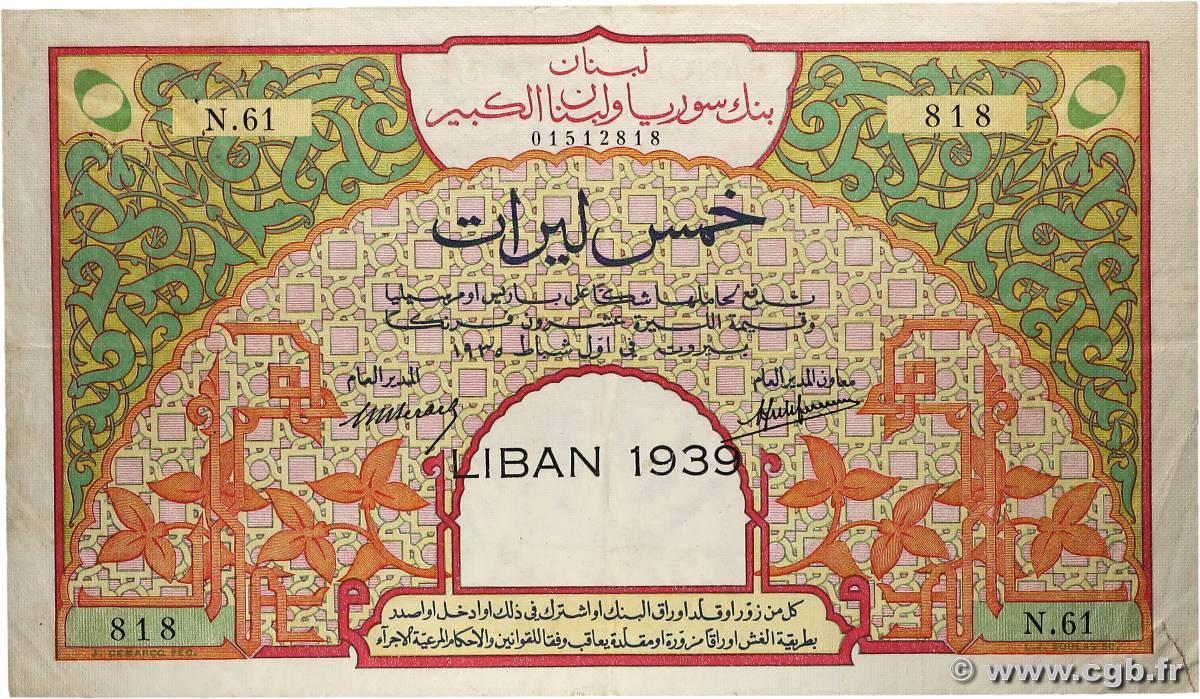 لبنان
بنك سوريا ولبنان الكبير
01512818
N.61
818
خمس ليرات
تدفع لحاملها شكّا على باريس او مرسيليا
وقيمة الليرة عشرون فرنكًا
بيروت في اوّل شباط ١٩٣٥
المدير العام
معاون المدير العام
LIBAN 1939
كل من زوّر او قلّد اوراق البنك او اشترك في ذلك او ادخل او اصدر
بطريقة الغش اوراقا مزوّرة او مقلّدة يعاقب وفقا للقوانين والاحكام المرعيّة الاجراء
818
N.61
© www.cgb.fr